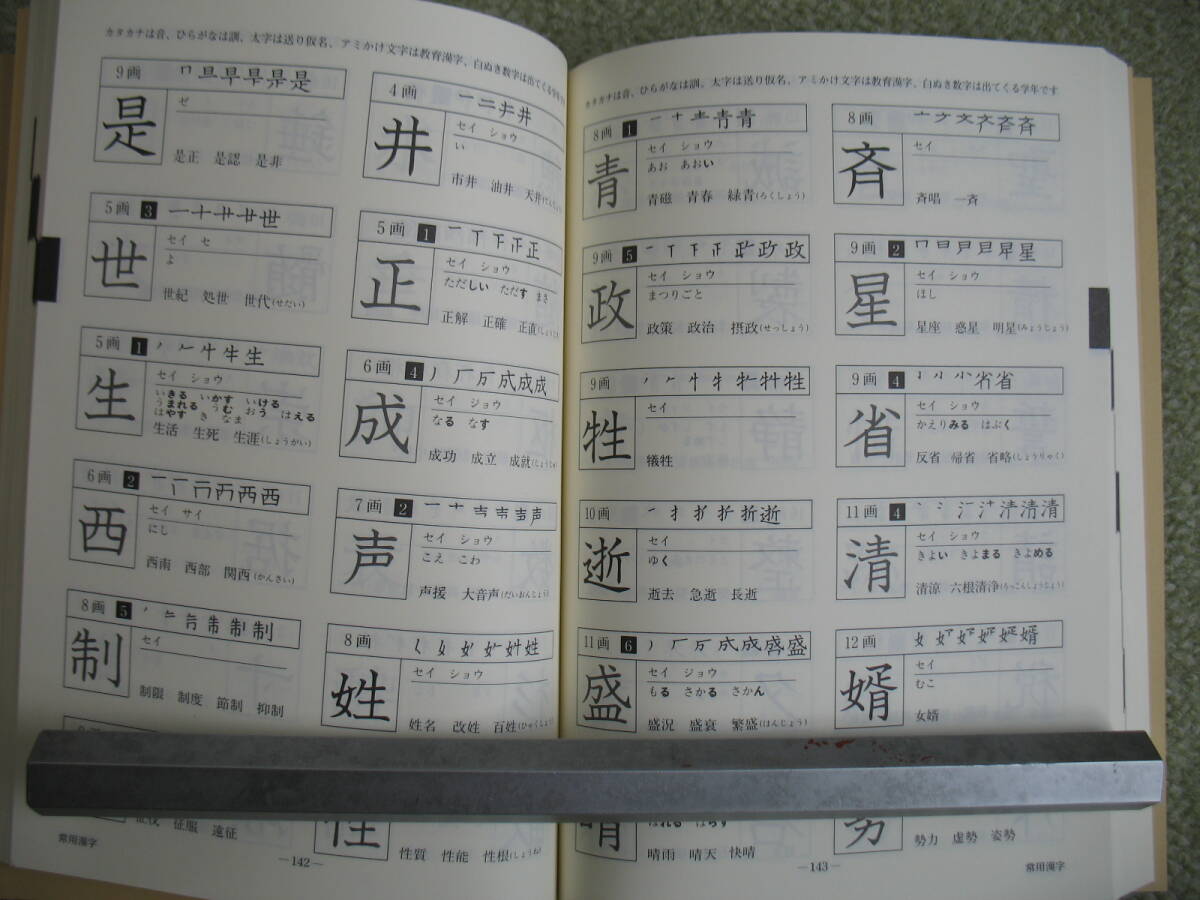 カタカナは音、ひらがなは訓、太字は送り仮名、アミかけ文字は教育漢字、白ぬき数字は出てくる学年です
9画
是
ゼ
是正 是認 是非
5画 3
世
セイ セ
よ
世紀 処世 世代(せだい)
5画 1
生
セイ ショウ
いきる いかす いける
うまれる うむ おう はえる
はやす き なま
生活 生死 生涯(しょうがい)
6画 2
西
セイ サイ
にし
西南 西部 関西(かんさい)
8画 5
制
セイ
制限 制度 節制 抑制
征伐 征服 遠征
4画
井
セイ ショウ
い
市井 油井 天井(てんじょう)
5画 1
正
セイ ショウ
ただしい ただす まさ
正解 正確 正直(しょうじき)
6画 4
成
セイ ジョウ
なる なす
成功 成立 成就(じょうじゅ)
7画 2
声
セイ ショウ
こえ こわ
声援 大音声(だいおんじょう)
8画
姓
セイ ショウ
姓名 改姓 百姓(ひゃくしょう)
性
性質 性能 性根(しょうね)
常用漢字
—142—
カタカナは音、ひらがなは訓、太字は送り仮名、アミかけ文字は教育漢字、白ぬき数字は出てくる学年です
8画 1
青
セイ ショウ
あお あおい
青磁 青春 緑青(ろくしょう)
9画 5
政
セイ ショウ
まつりごと
政策 政治 摂政(せっしょう)
9画
牲
セイ
犠牲
10画
逝
セイ
ゆく
逝去 急逝 長逝
11画 6
盛
セイ ジョウ
もる さかる さかん
盛況 盛衰 繁盛(はんじょう)
晴
はれる はらす
晴雨 晴天 快晴
8画
斉
セイ
斉唱 一斉
9画 2
星
セイ ショウ
ほし
星座 惑星 明星(みょうじょう)
9画 4
省
セイ ショウ
かえりみる はぶく
反省 帰省 省略(しょうりゃく)
11画 4
清
セイ ショウ
きよい きよまる きよめる
清涼 六根清浄(ろっこんしょうじょう)
12画
婿
セイ
むこ
女婿
勢
勢力 虚勢 姿勢
—143—
常用漢字